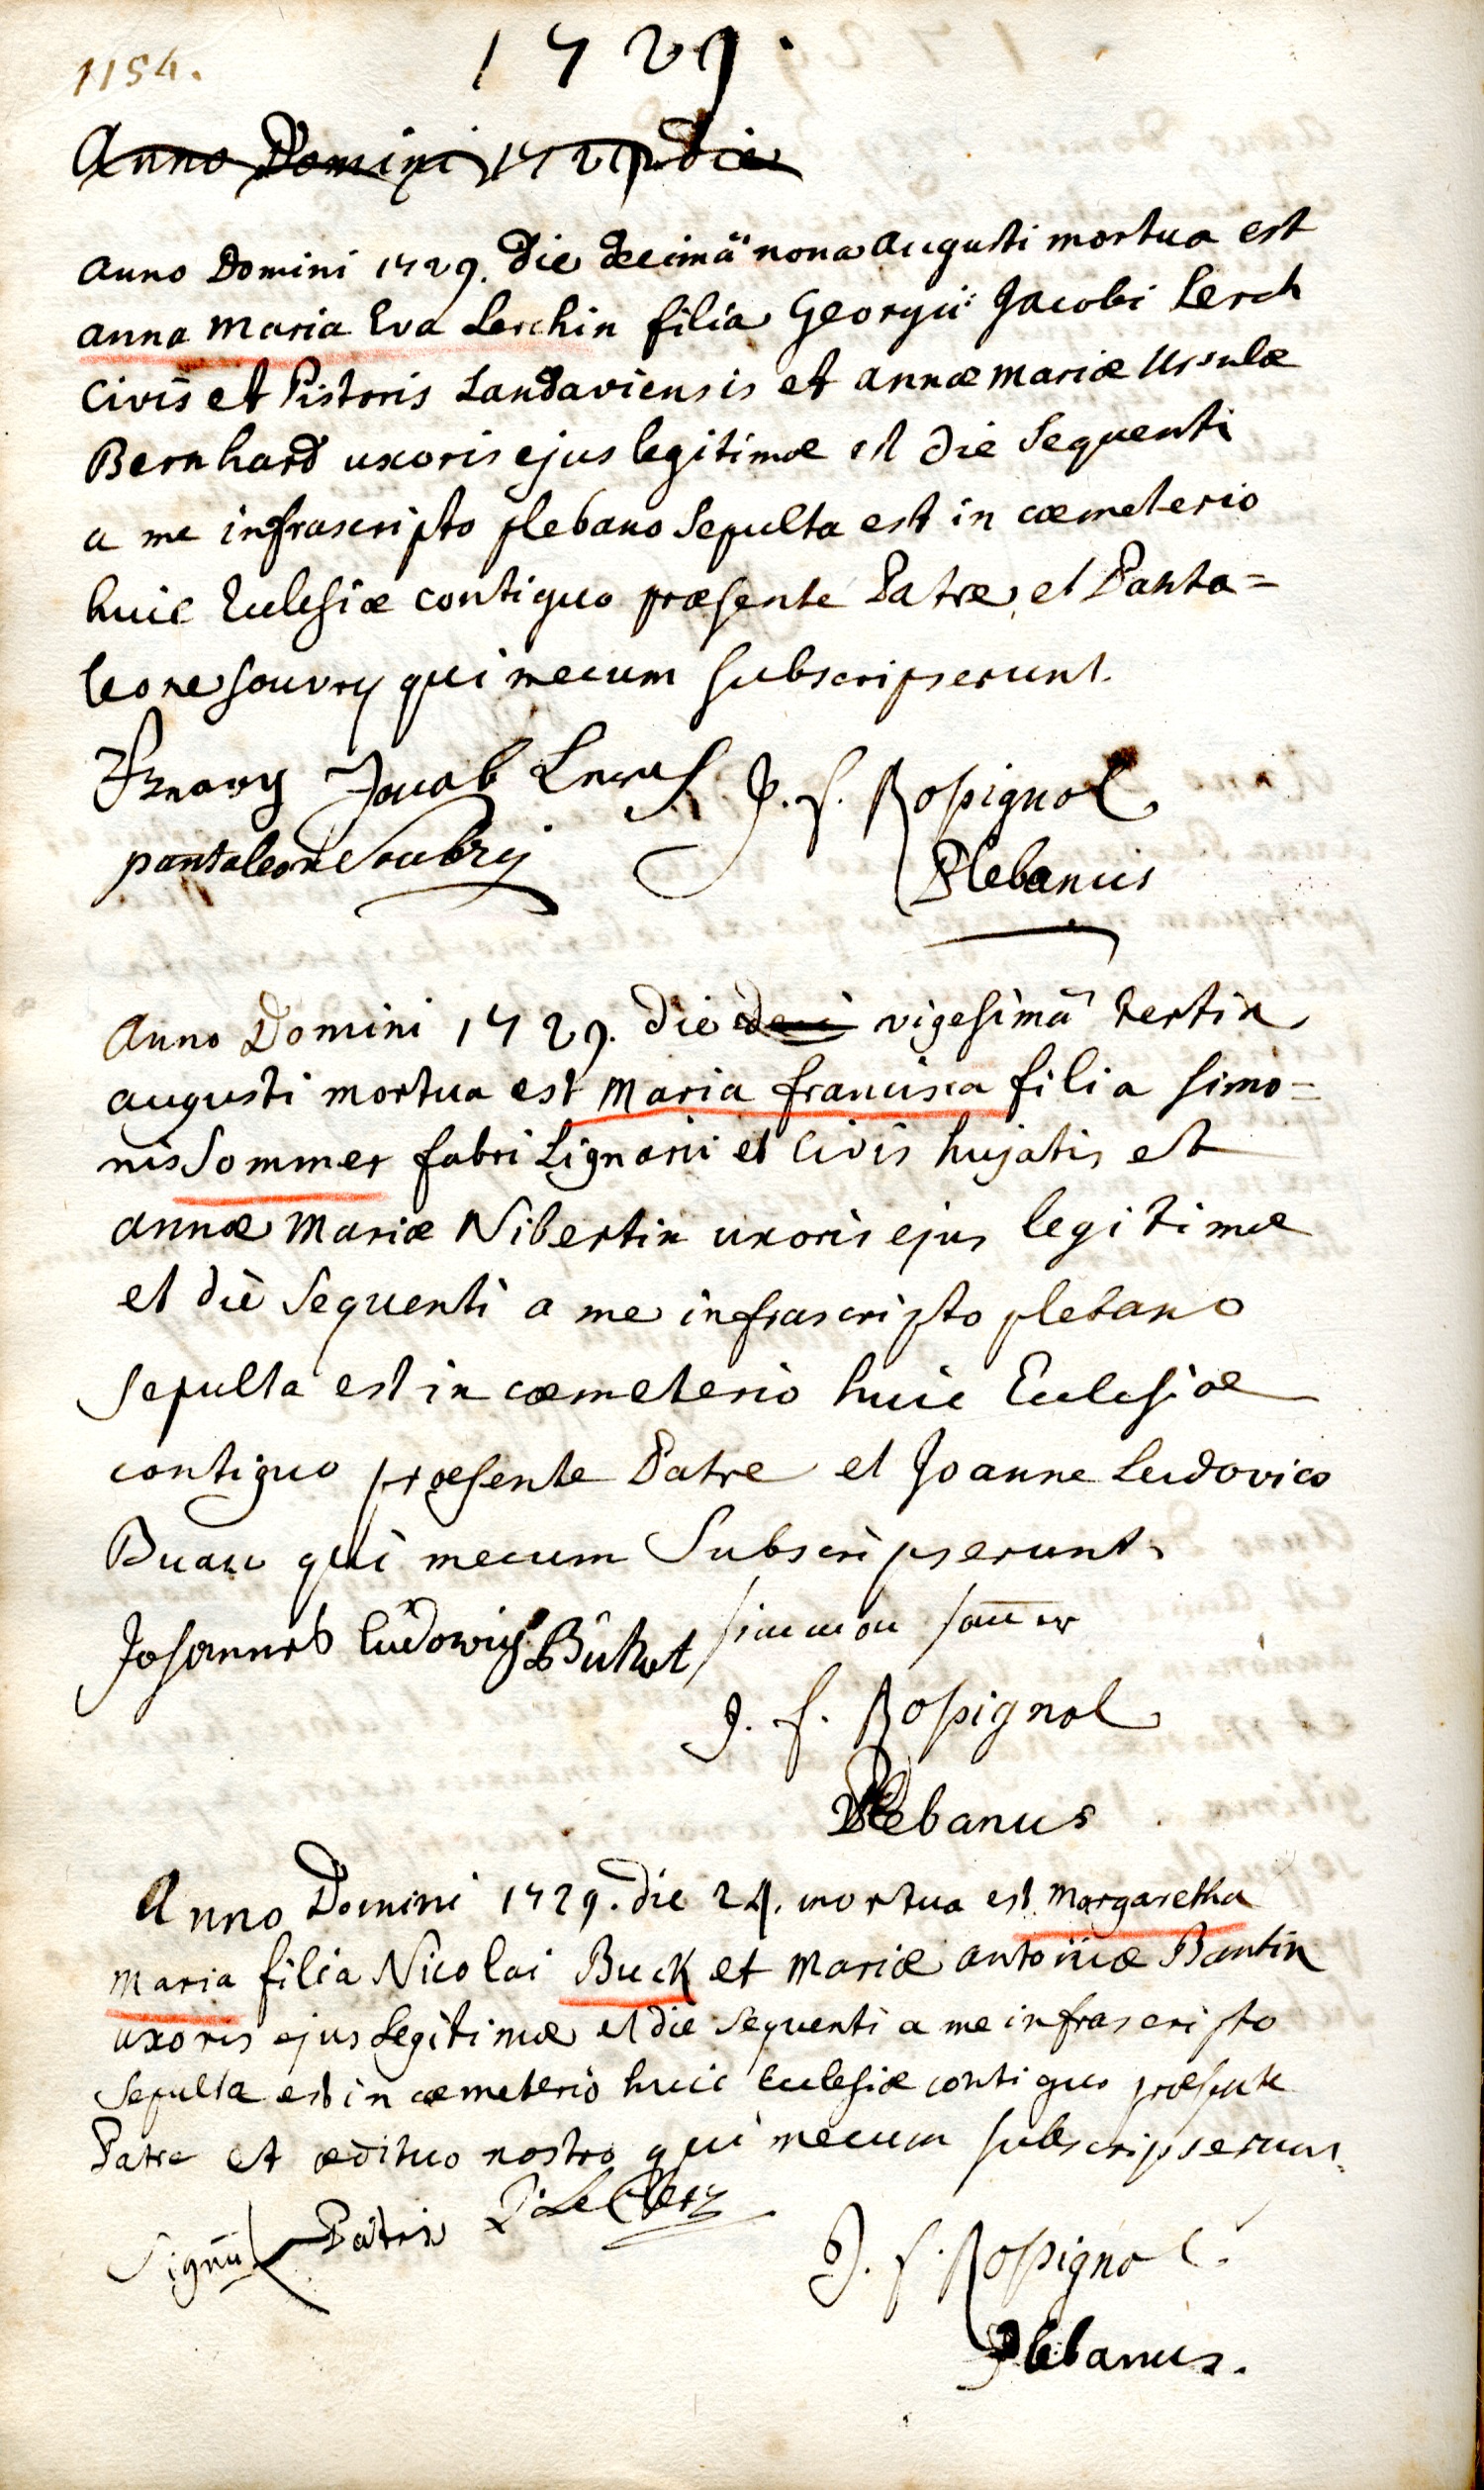 1154.
1729.
Anno Domini 1729 die
Anno Domini 1729. die decimâ nona augusti mortua est
anna Maria Eva Lerchin filia Georgii Jacobi Lerch
civis et Pistoris Landaviensis et annæ mariæ Ursulæ
Bernhard uxoris ejus legitimæ et die sequenti
a me infrascripto plebano sepulta est in cæmeterio
huic Eclesiæ contiguo præsente Patre et Panta=
leone souvry qui mecum subscripserunt.
Jacob J. f. Rossignol
pantaleon Soubry Plebanus
Anno Domini 1729. die deci vigesimâ tertia
augusti mortua est Maria francisca filia simo=
nis Sommer fabri Lignarii et civis hujatis et
annæ Mariæ Nibertin uxoris ejus legitimæ
et die sequenti a me infrascripto plebano
sepulta est in cæmeterio huic Eclesiæ
contiguo præsente Patre et Joanne Ludovico
Buau qui mecum Subscripserunt.
Johannes Ludowig
J. f. Rossignol
Plebanus
Anno Domini 1729. die 24. mortua est Margaretha
Maria filia Nicolai Buck et Mariæ antoniæ Bantin
uxoris ejus Legitimæ et die sequenti a me infrascripto
sepulta est in cæmeterio huic Eclesiæ contiguo præsente
Patre et ædituo nostro qui mecum subscripserunt.
Signū Patris Le Clerz J. f. Rossignol.
Plebanus.